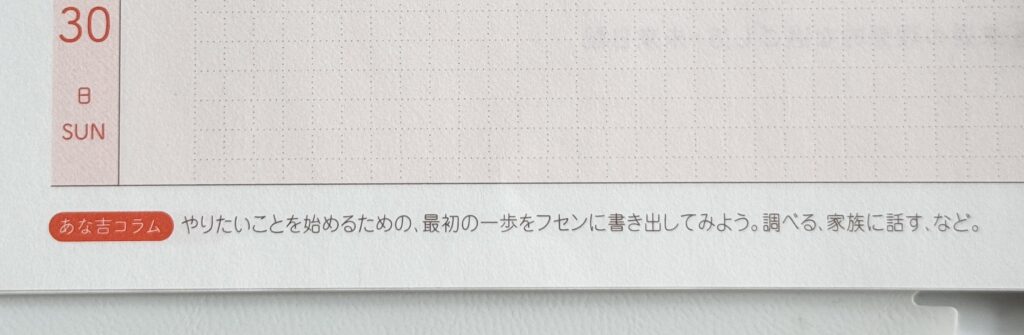 30
日
SUN
あな吉コラム やりたいことを始めるための、最初の一歩をフセンに書き出してみよう。調べる、家族に話す、など。